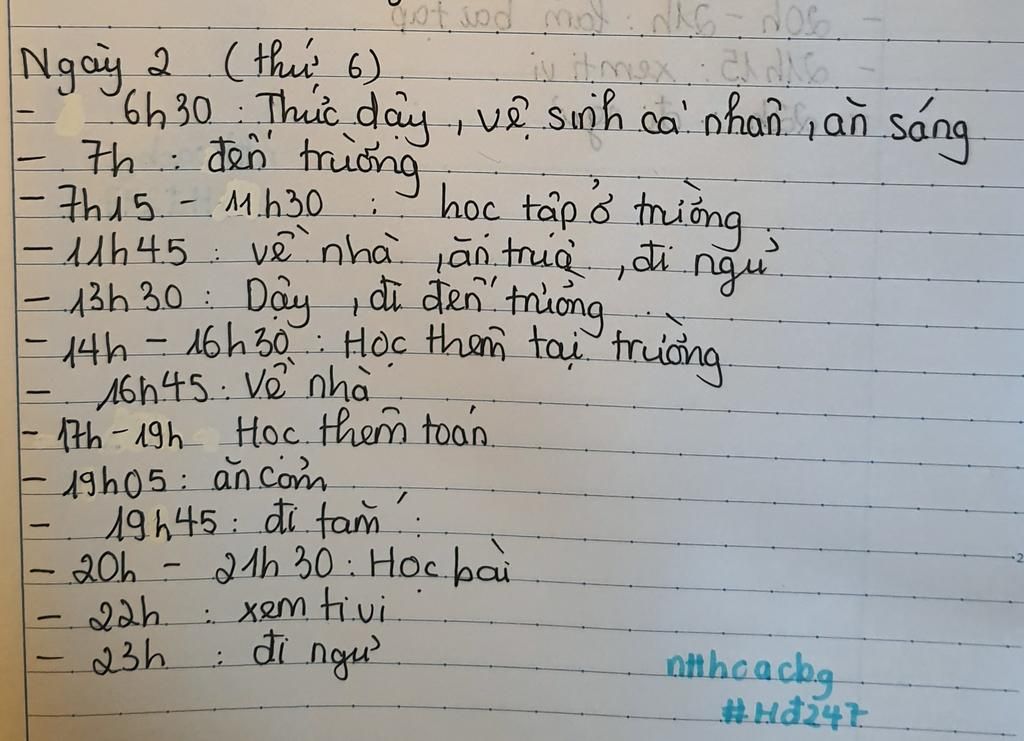 Ngày 2 (thứ 6)
- 6h30 : Thức dậy, vệ sinh cá nhân, ăn sáng
- 7h : đến trường
- 7h15 - 11h30 : học tập ở trường
- 11h45 : về nhà, ăn trưa, đi ngủ
- 13h30 : Dậy, đi đến trường
- 14h - 16h30 : Học thêm tại trường
- 16h45 : Về nhà
- 17h - 19h Học thêm toán
- 19h05 : ăn cơm
- 19h45 : đi tắm
- 20h - 21h30 : Học bài
- 22h : xem ti vi
- 23h : đi ngủ
ntthcacbg
#Hđ247